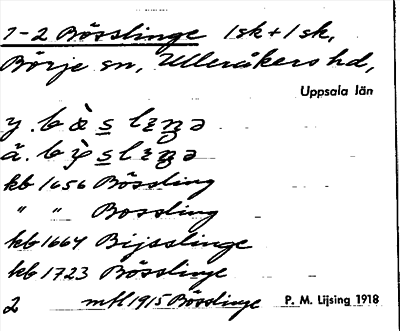 1-2 Bösslinge 1 sk + 1 sk,
Börje sn, Ulleråkers hd,
Uppsala län
y. 
ä. 
kb 1656 Bössling
" " Bossling
kb 1664 Bijsslinge
kb 1723 Bösslinge
2 mtl 1915 Bösslinge P. M. Lijsing 1918